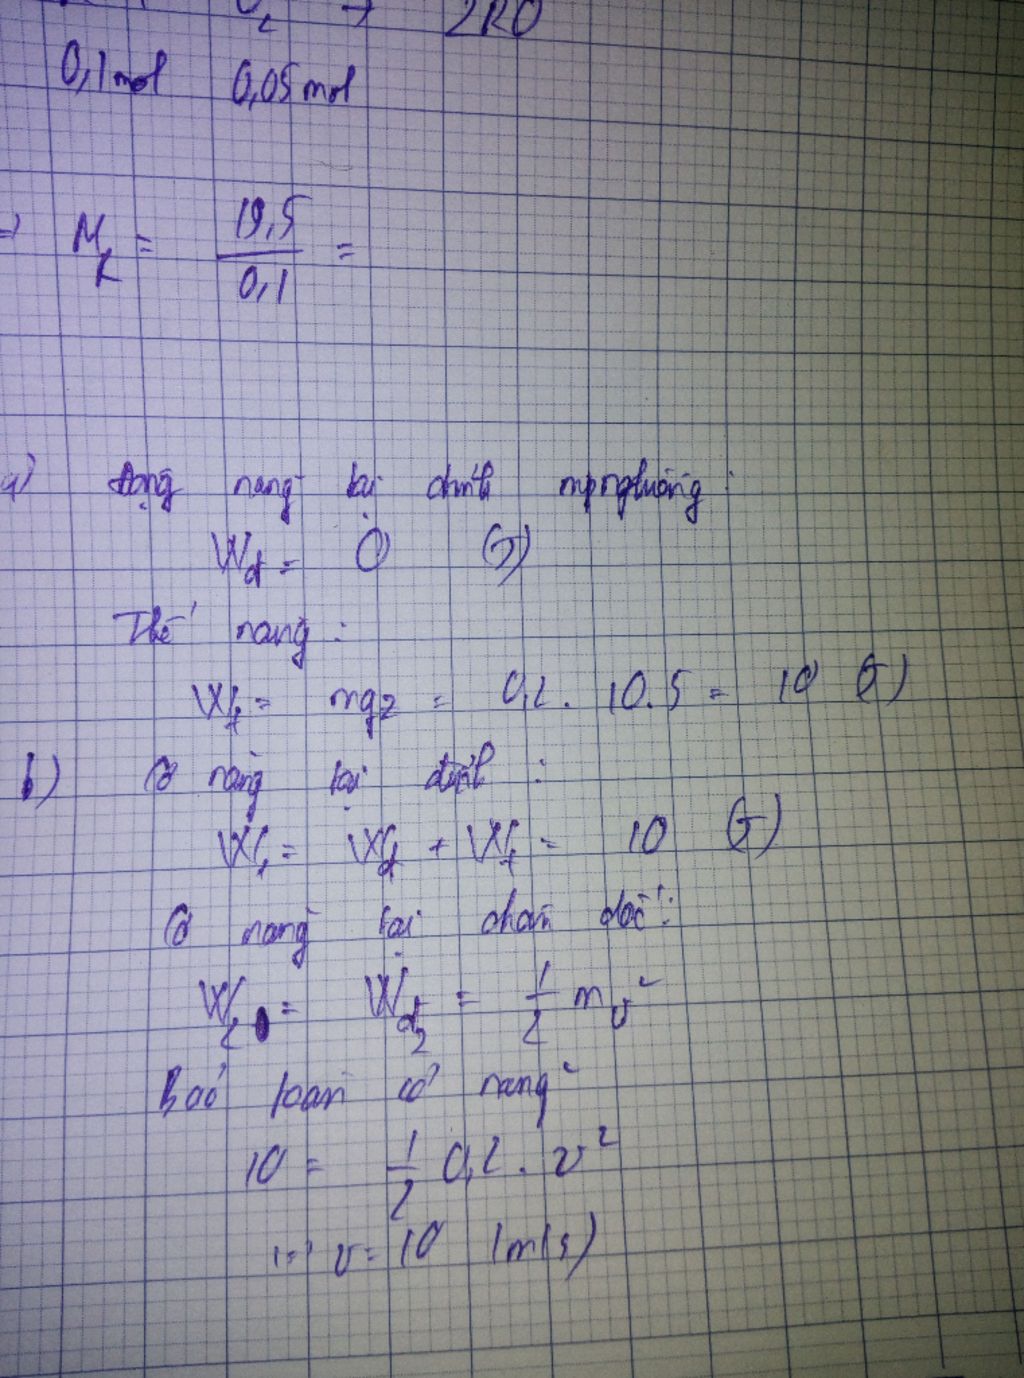 O₂ → 2RO
0,1 mol 0,05 mol
=> M_R = 19,5 / 0,1 =
a) Động năng tại đỉnh mp nghiêng:
W_đ = 0 (J)
Thế năng:
W_t = mgz = 0,2 . 10 . 5 = 10 (J)
b) Cơ năng tại đỉnh :
W_1 = W_đ + W_t = 10 (J)
Cơ năng tại chân dốc :
W_2 = W_đ2 = 1/2 mv²
Bảo toàn cơ năng
10 = 1/2 0,2 . v²
=> v = 10 (m/s)